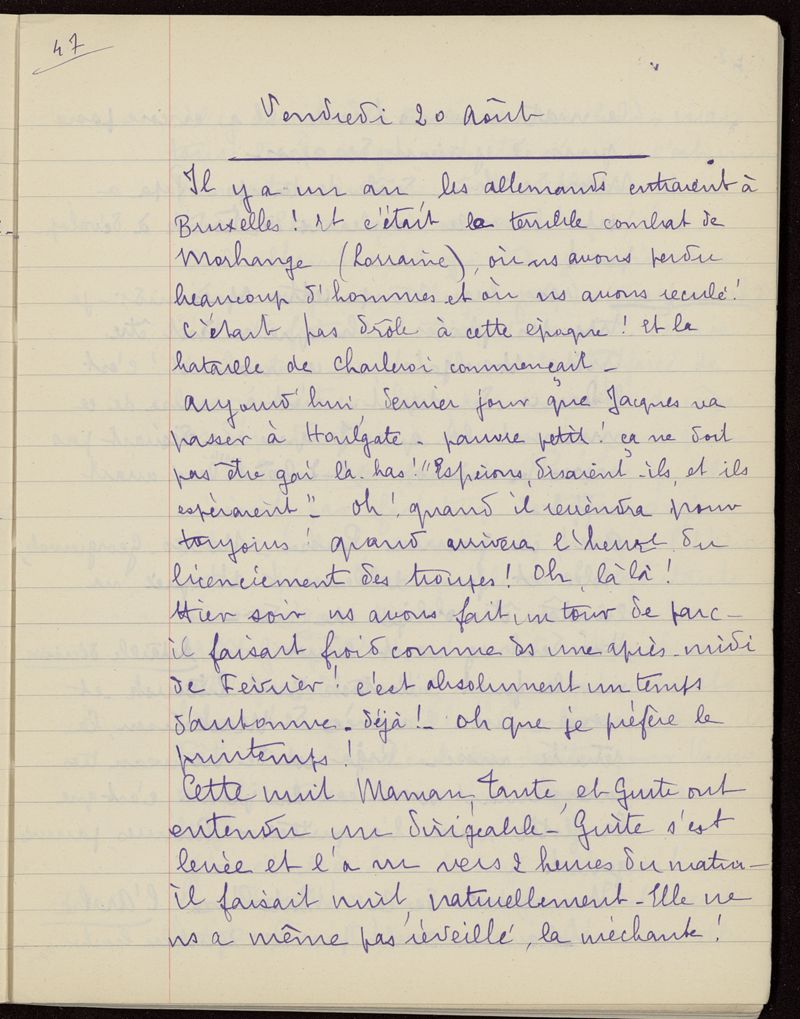 47
Vendredi 20 Août
Il y a un an les allemands entraient à
Bruxelles ! Et c'était le terrible combat de
Morhange (Lorraine), où ns avons perdu
beaucoup d'hommes et où ns avons reculé !
C'était pas drôle à cette époque ! Et la
bataille de Charleroi commençait _
Aujourd'hui, dernier jour que Jacques va
passer à Houlgate _ pauvre petit ! ça ne doit
pas être gai là-bas ! "Espérons, disaient-ils, et ils
espéraient" _ Oh ! quand il reviendra pour
toujours ! quand arrivera l'heure du
licenciement des troupes ! Oh, là là !
Hier soir ns avons fait un tour de parc _
il faisait froid comme ds une après-midi
de Février ! c'est absolument un temps
d'automne _ déjà ! _ Oh que je préfère le
printemps !
Cette nuit Maman, Tante, et Guite ont
entendu un dirigeable _ Guite s'est
levée et l'a vu vers 2 heures du matin _
il faisait nuit, naturellement _ Elle ne
ns a même pas réveillé, la méchante !